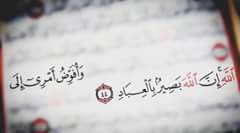 وَأُفَوِّضُ أَمْرِىٓ إِلَى
ٱللَّهِ ۚ إِنَّ ٱللَّهَ بَصِيرٌۢ بِٱلْعِبَادِ ٤٤